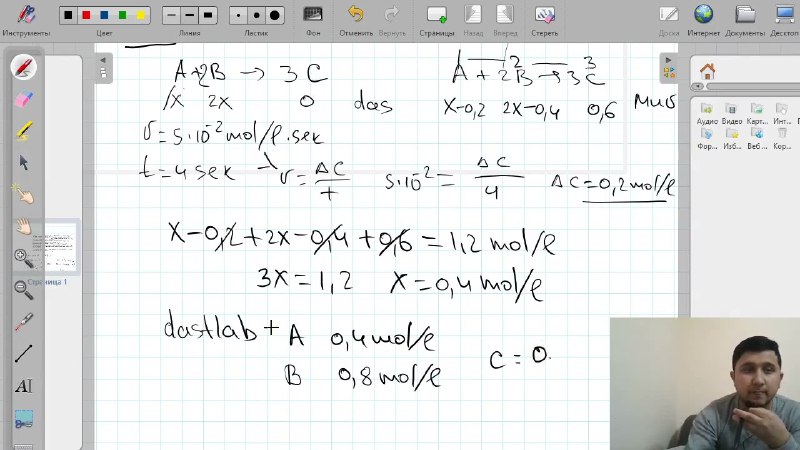 Инструменты Цвет Линия Ластик Фон Отменить Вернуть Страницы Назад Вперед Стереть Доска Интернет Документы
A+2B → 3C
x 2x 0 das
v=5·10⁻² mol/l·sek
t=4 sek v=ΔC/t 5·10⁻²=ΔC/4 ΔC=0,2 mol/l
1 2 3
A+2B→3C
x-0,2 2x-0,4 0,6 мив
x-0,2+2x-0,4+0,6=1,2 mol/l
3x=1,2 x=0,4 mol/l
dastlab + A 0,4 mol/l
B 0,8 mol/l
C = 0.
Страница 1
Аудио Видео Карт... Инт...
Фор... Виз... Веб ... Кор...